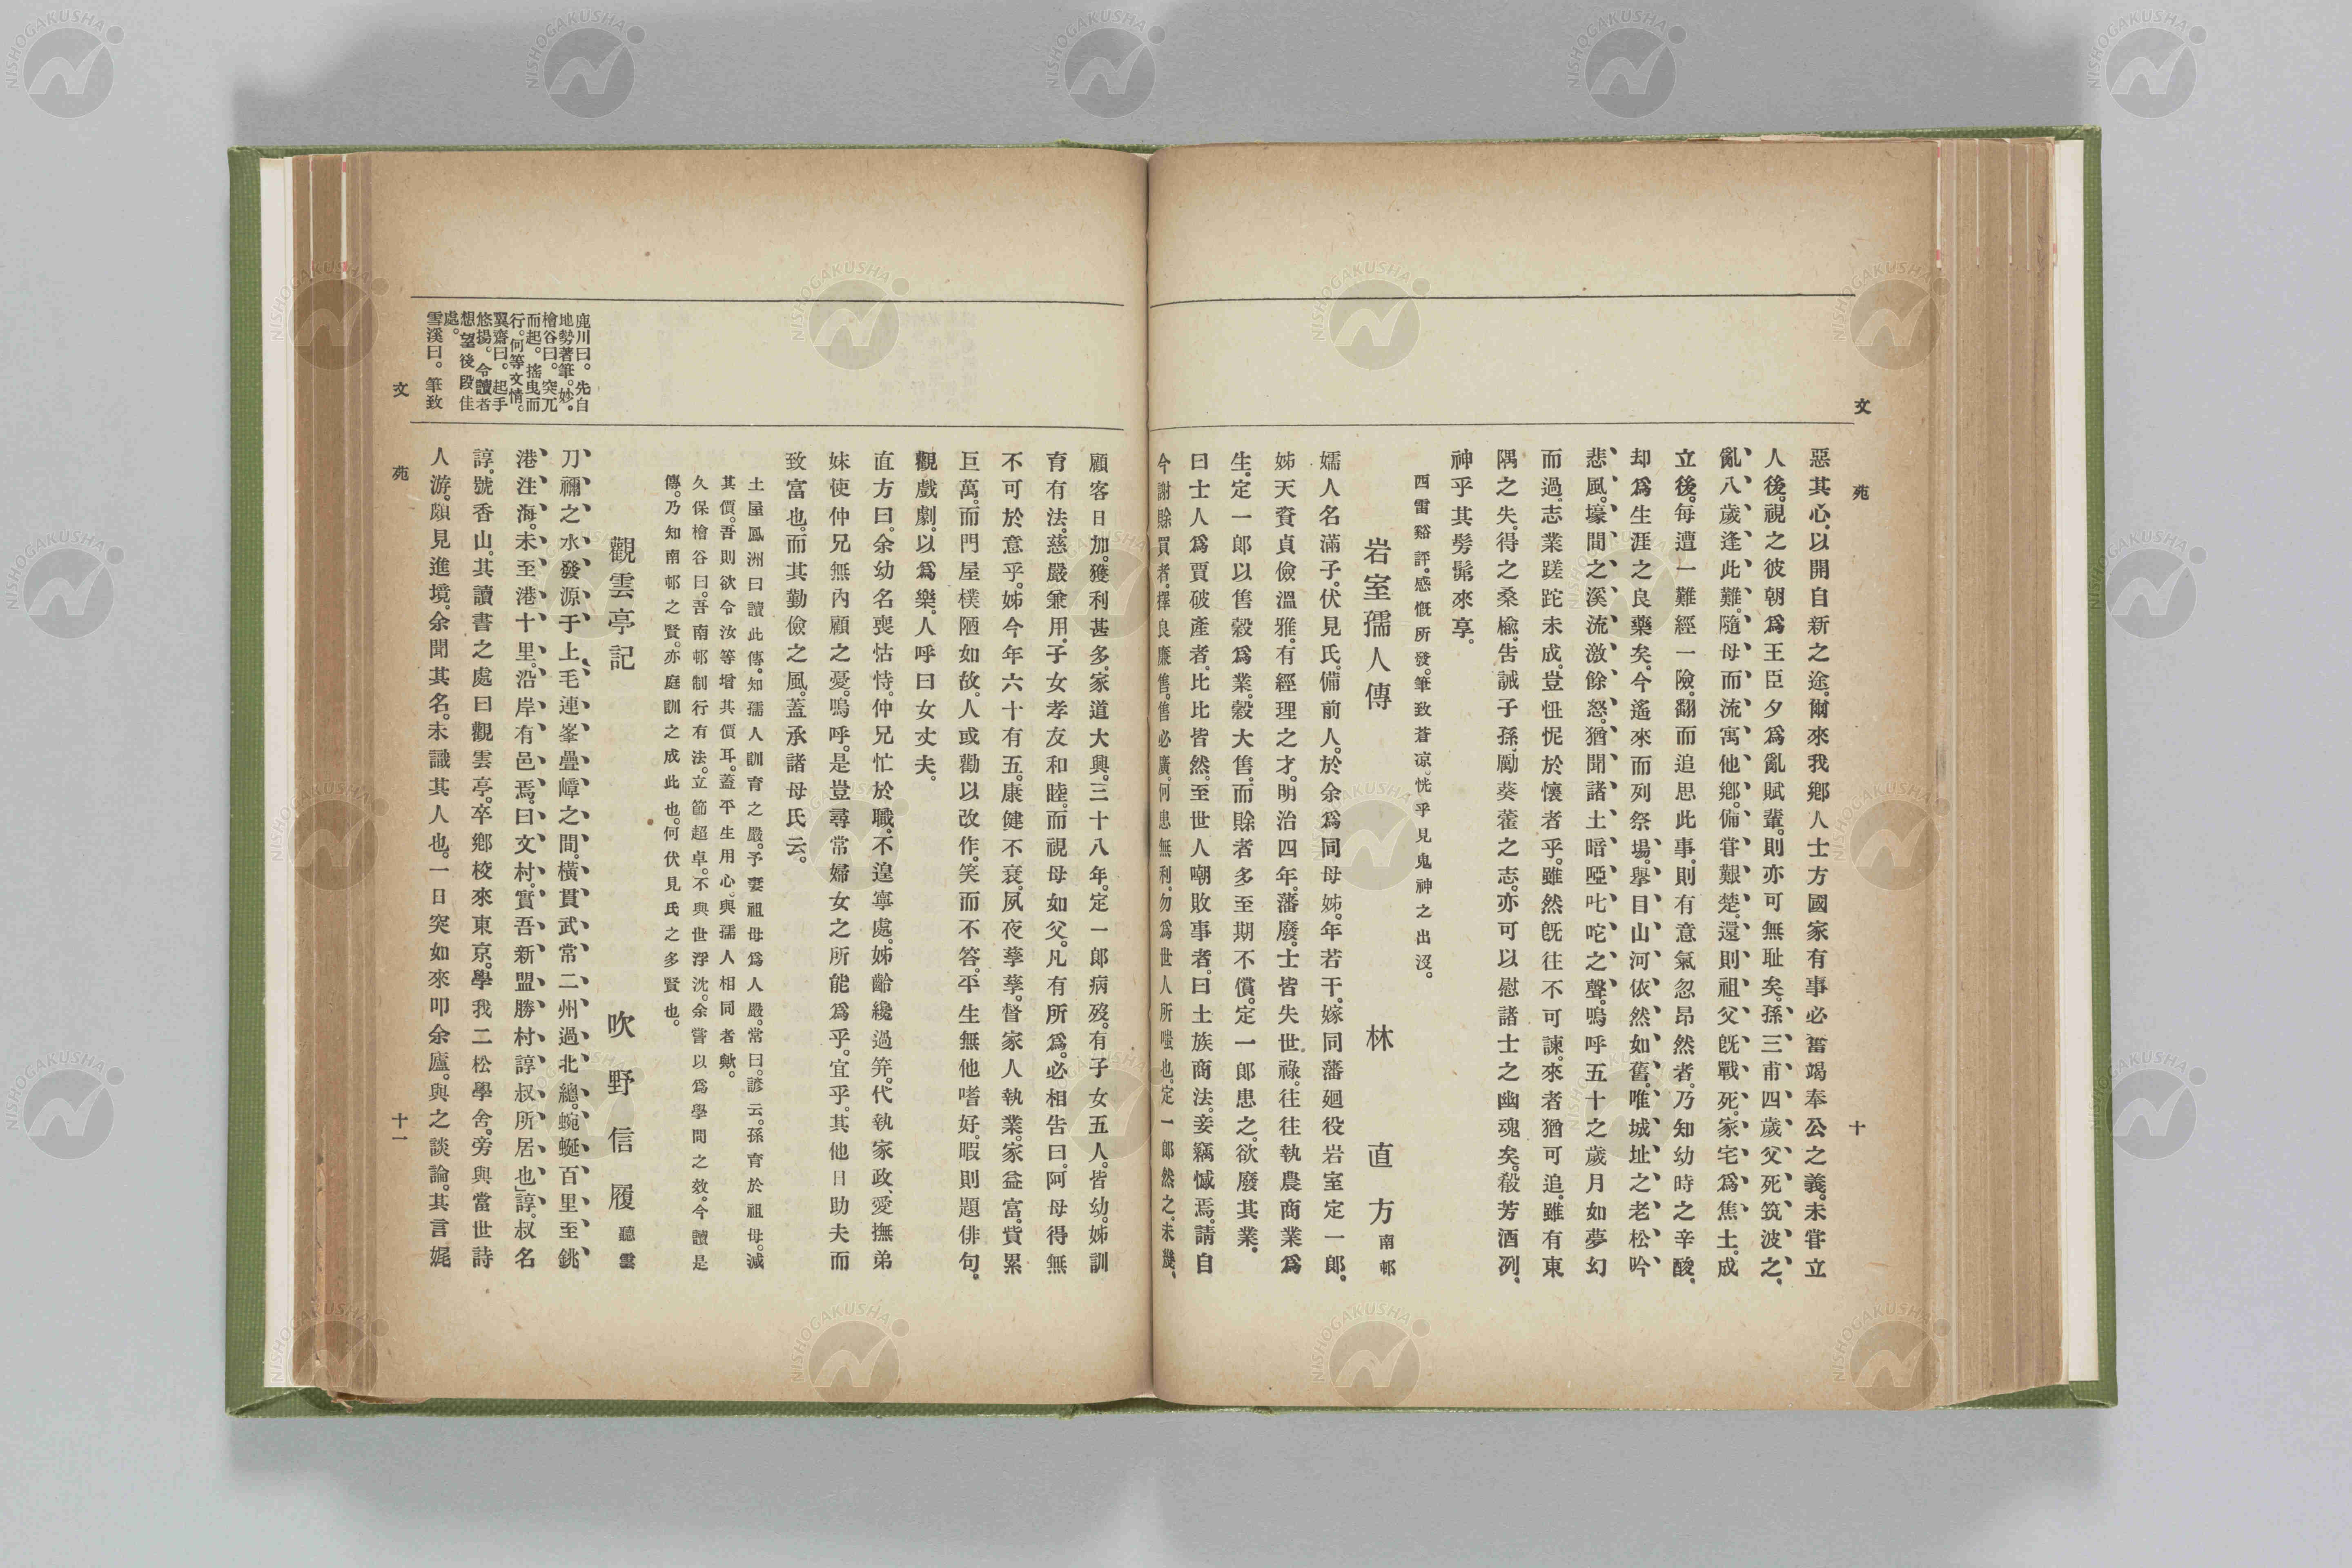 文苑
十
惡其心。以開自新之途。爾來我鄕人士方國家有事必奮竭奉公之義。未甞立
人後。視之彼朝爲王臣夕爲亂賊輩。則亦可無耻矣。孫三甫四歲父死筑波之
亂、八歲逢此難。隨母而流寓他鄕。備甞艱楚。還則祖父旣戰死。家宅爲焦土。成
立後。每遭一難經一險。翻而追思此事。則有意氣忽昂然者。乃知幼時之辛酸、
却爲生涯之良藥矣。今遙來而列祭場。擧目山河依然如舊。唯城址之老松吟
悲風。壕間之溪流激餘怒。猶聞諸士喑啞叱咜之聲。嗚呼五十之歲月如夢幻
而過。志業蹉跎未成。豈忸怩於懷者乎。雖然旣往不可諫。來者猶可追。雖有東
隅之失。得之桑楡。吿誡子孫。勵葵藿之志。亦可以慰諸士之幽魂矣。殽芳酒冽、
神乎其髣髴來享。
西雷谿評。感慨所發。筆致蒼凉。恍乎見鬼神之出沒。
岩室孺人傳
林直方 南邨
孺人名滿子。伏見氏。備前人。於余爲同母姊。年若干。嫁同藩廻役岩室定一郞。
姊天資貞儉溫雅。有經理之才。明治四年。藩廢。士皆失世祿。往往執農商業爲
生。定一郞以售穀爲業。穀大售。而賒者多至期不償。定一郞患之。欲廢其業。
曰士人爲賈破產者。比比皆然。至世人嘲敗事者。曰士族商法。妾竊憾焉。請自
今謝賒買者。擇良廉售。售必廣。何患無利。勿爲世人所嗤也。定一郞然之。未幾、
顧客日加。獲利甚多。家道大興。三十八年。定一郞病歿。有子女五人。皆幼。姊訓
育有法。慈嚴兼用。子女孝友和睦。而視母如父。凡有所爲。必相吿曰。阿母得無
不可於意乎。姊今年六十有五。康健不衰。夙夜孳孳。督家人執業。家益富。貲累
巨萬。而門屋樸陋如故。人或勸以改作。笑而不答。平生無他嗜好。暇則題俳句。
觀戲劇。以爲樂。人呼曰女丈夫。
直方曰。余幼名喪怙恃。仲兄忙於職。不遑寧處。姊齡纔過笄。代執家政、愛撫弟
妹使仲兄無內顧之憂。嗚呼。是豈尋常婦女之所能爲乎。宜乎。其他日助夫而
致富也。而其勤儉之風。蓋承諸母氏云。
土屋鳳洲曰讀此傳。知孺人訓育之嚴。予妻祖母爲人嚴。常曰。諺云。孫育於祖母。減
其價。吾則欲令汝等增其價耳。蓋平生用心。與孺人相同者歟。
久保檜谷曰。吾南邨制行有法。立節超卓。不與世浮沈。余嘗以爲學問之效。今讀是
傳。乃知南邨之賢。亦庭訓之成此也。何伏見氏之多賢也。
觀雲亭記
吹野信履 聽雲
刀禰之水發源于上毛連峯疊嶂之間。橫貫武常二州過北總。蜿蜒百里至銚
港注海。未至港十里。沿岸有邑焉。曰文村。實吾新盟勝村諄叔所居也」諄。叔名
諄。號香山。其讀書之處曰觀雲亭。卒鄕校來東京。學我二松學舍。旁與當世詩
人游。頗見進境。余聞其名。未識其人也。一日突如來叩余廬。與之談論。其言娓
鹿川曰。先自
地勢著筆。妙。
檜谷曰。突兀
而起。搖曳而
行。何等文情。
翼齋曰。起手
悠揚。令讀者
想望後段佳
處。
雪溪曰。筆致
文苑
十一